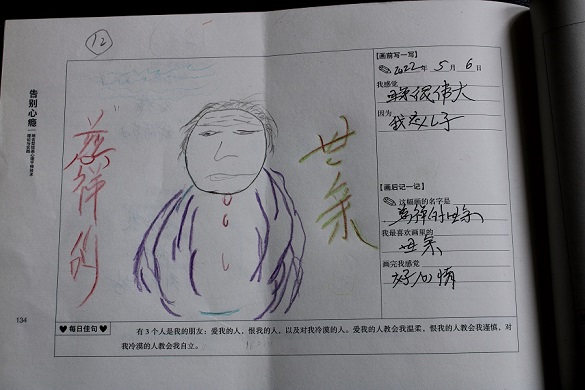 12
【画前写一写】
2022年 5月 6日
我感觉
母亲很伟大
因为
我亦儿子
慈祥的
母亲
【画后记一记】
这幅画的名字是
慈祥的母亲
我最喜欢画里的
母亲
画完我感觉
好心情
告别心瘾
134
每日佳句
有3个人是我的朋友：爱我的人，恨我的人，以及对我冷漠的人。爱我的人教会我温柔，恨我的人教会我谨慎，对
我冷漠的人教会我自立。